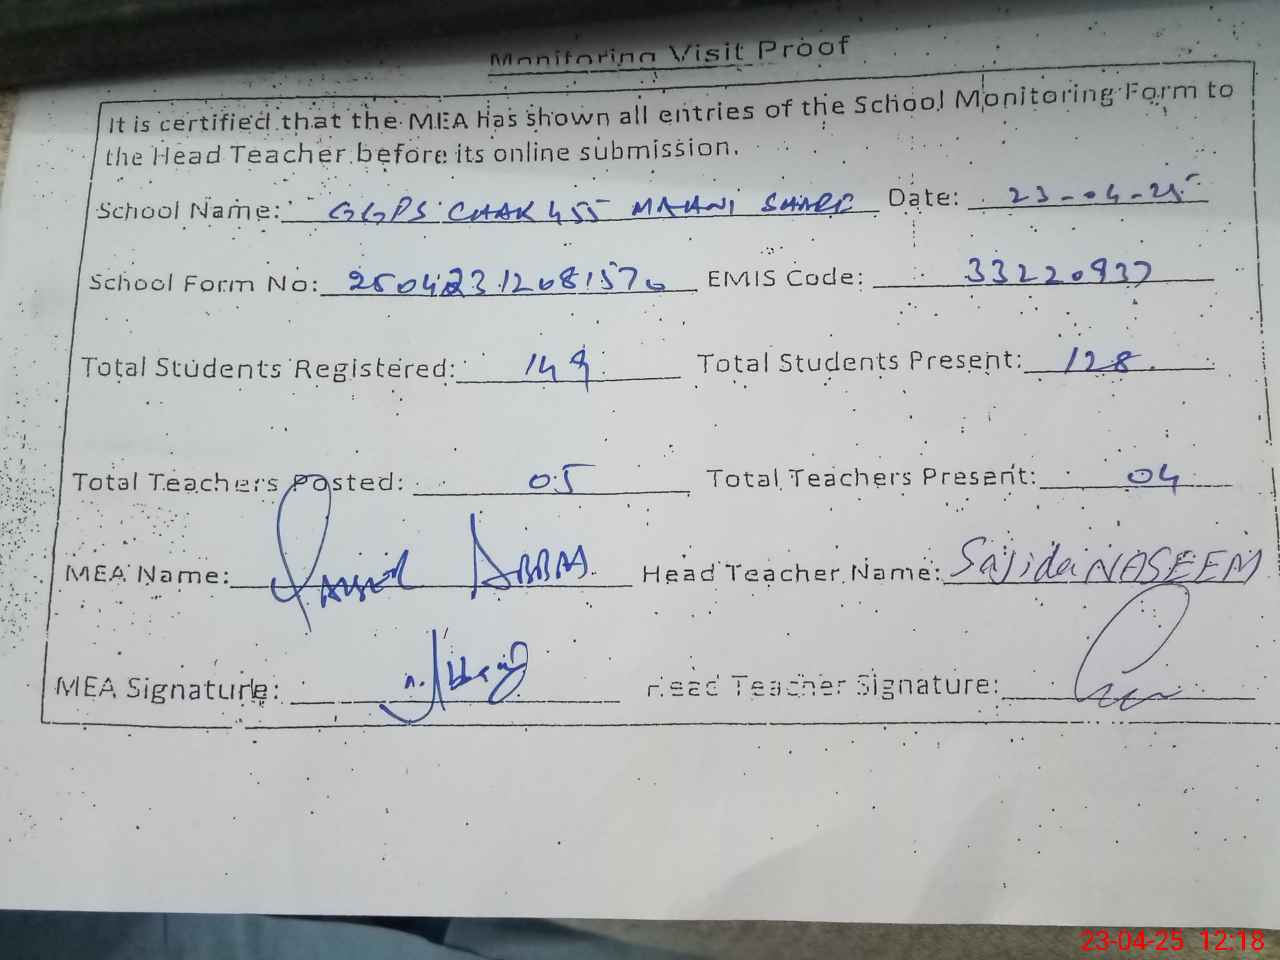 Monitoring Visit Proof
It is certified that the MEA has shown all entries of the School Monitoring Form to
the Head Teacher before its online submission.
School Name: GGPS CHAK 455 MAHNI SHARE Date: 23-04-25
School Form No: 25042312081570 EMIS Code: 33220937
Total Students Registered: 149 Total Students Present: 128
Total Teachers Posted: 05 Total Teachers Present: 04
MEA Name: ABBAS Head Teacher Name: Sajida NASEEM
MEA Signature: Head Teacher Signature:
23-04-25 12:18